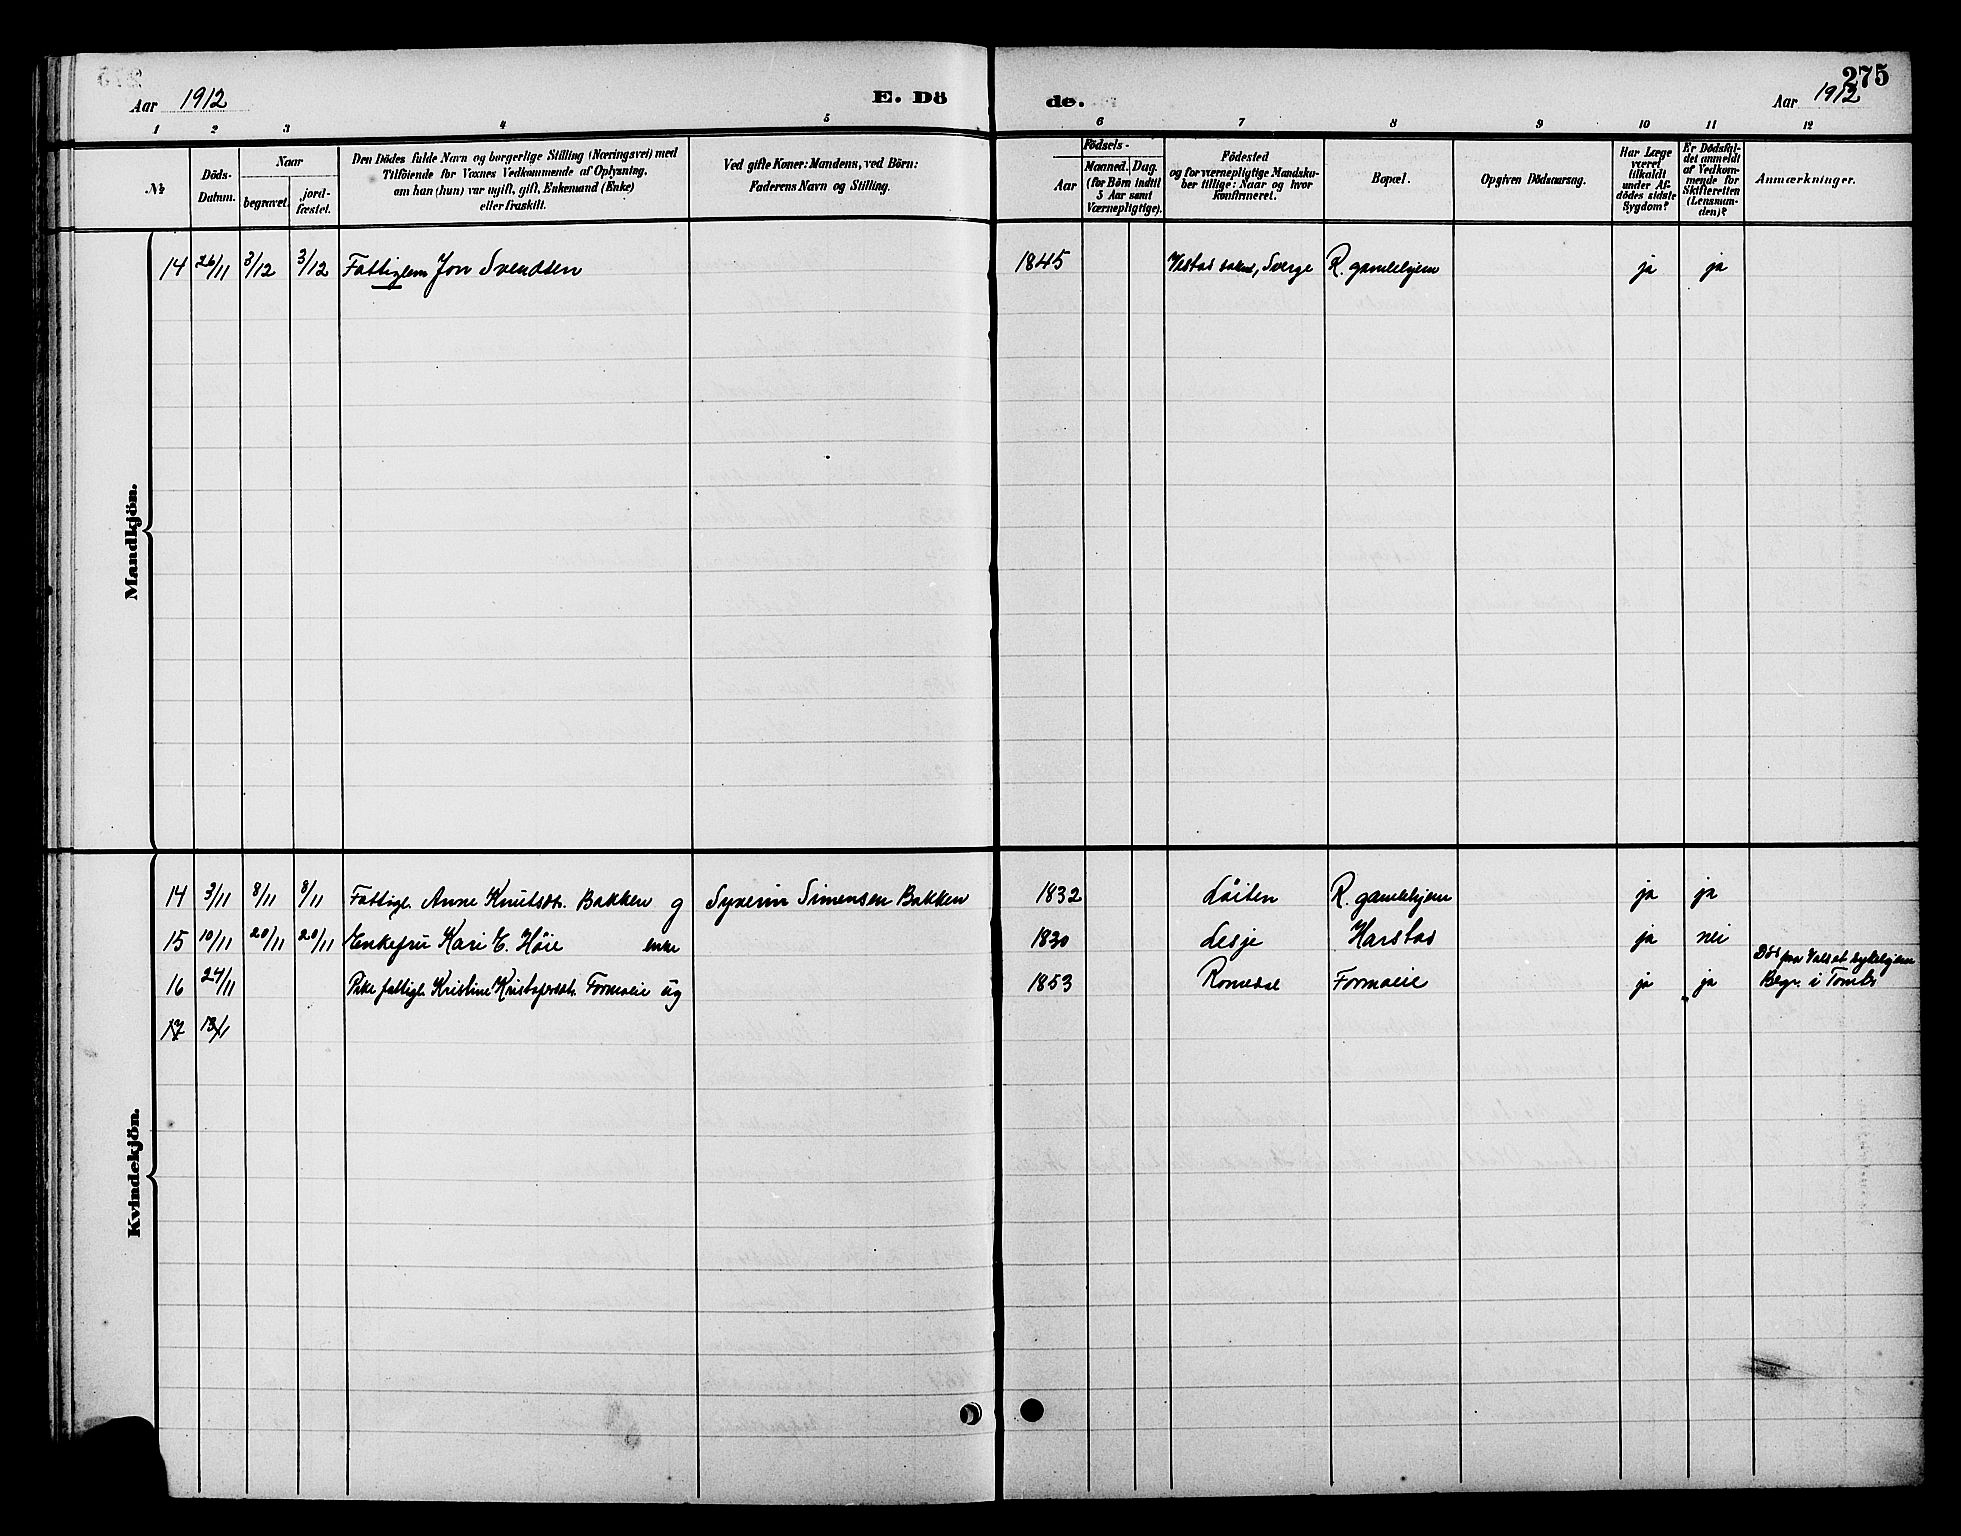 275
Aar 1912
E. Dö
de.
Aar 1912
1 2 3 4 5 6 7 8 9 10 11 12
№
Döds-
Datum.
Naar
begravet.
jord-
fæstet.
Den Dödes fulde Navn og borgerlige Stilling (Næringsvei) med
Tilföiende for Voxnes Vedkommende af Oplysning,
om han (hun) var ugift, gift, Enkemand (Enke)
eller fraskilt.
Ved gifte Koner: Mandens, ved Börn:
Faderens Navn og Stilling.
Födsels-
Aar
Maaned. Dag.
(for Börn indtil
5 Aar samt
Værnepligtige).
Födested
og for værnepligtige Mandska-
ber tillige: Naar og hvor
konfirmeret.
Bopæl.
Opgiven Dödsaarsag.
Har Læge
været
tilkaldt
under Af-
dödes sidste
Sygdom?
Er Dödsfal-
det anmeldt
af Vedkom-
mende for
Skifteretten
(Lensman-
den)?
Anmærkninger.
Mandkjön.
14 26/11 3/12 3/12 Fattiglem Jon Svendsen 1845 Sverge R. gamlehjem ja ja
Kvindekjön.
14 3/11 8/11 8/11 Fattigl. Anne Knutsdt. Bakken g Syverin Simensen Bakken 1832 Löiten R. gamlehjem ja ja
15 10/11 20/11 20/11 Enkefru Kari E. Höie enke 1830 Lesje Harstad ja nei
16 24/11 Pike fattigl. Kristine Kristofersdt. Formoeie ug 1853 Romedal Formoeie ja ja
Död paa sykehjem
Begr. i Tomter
17 13/11